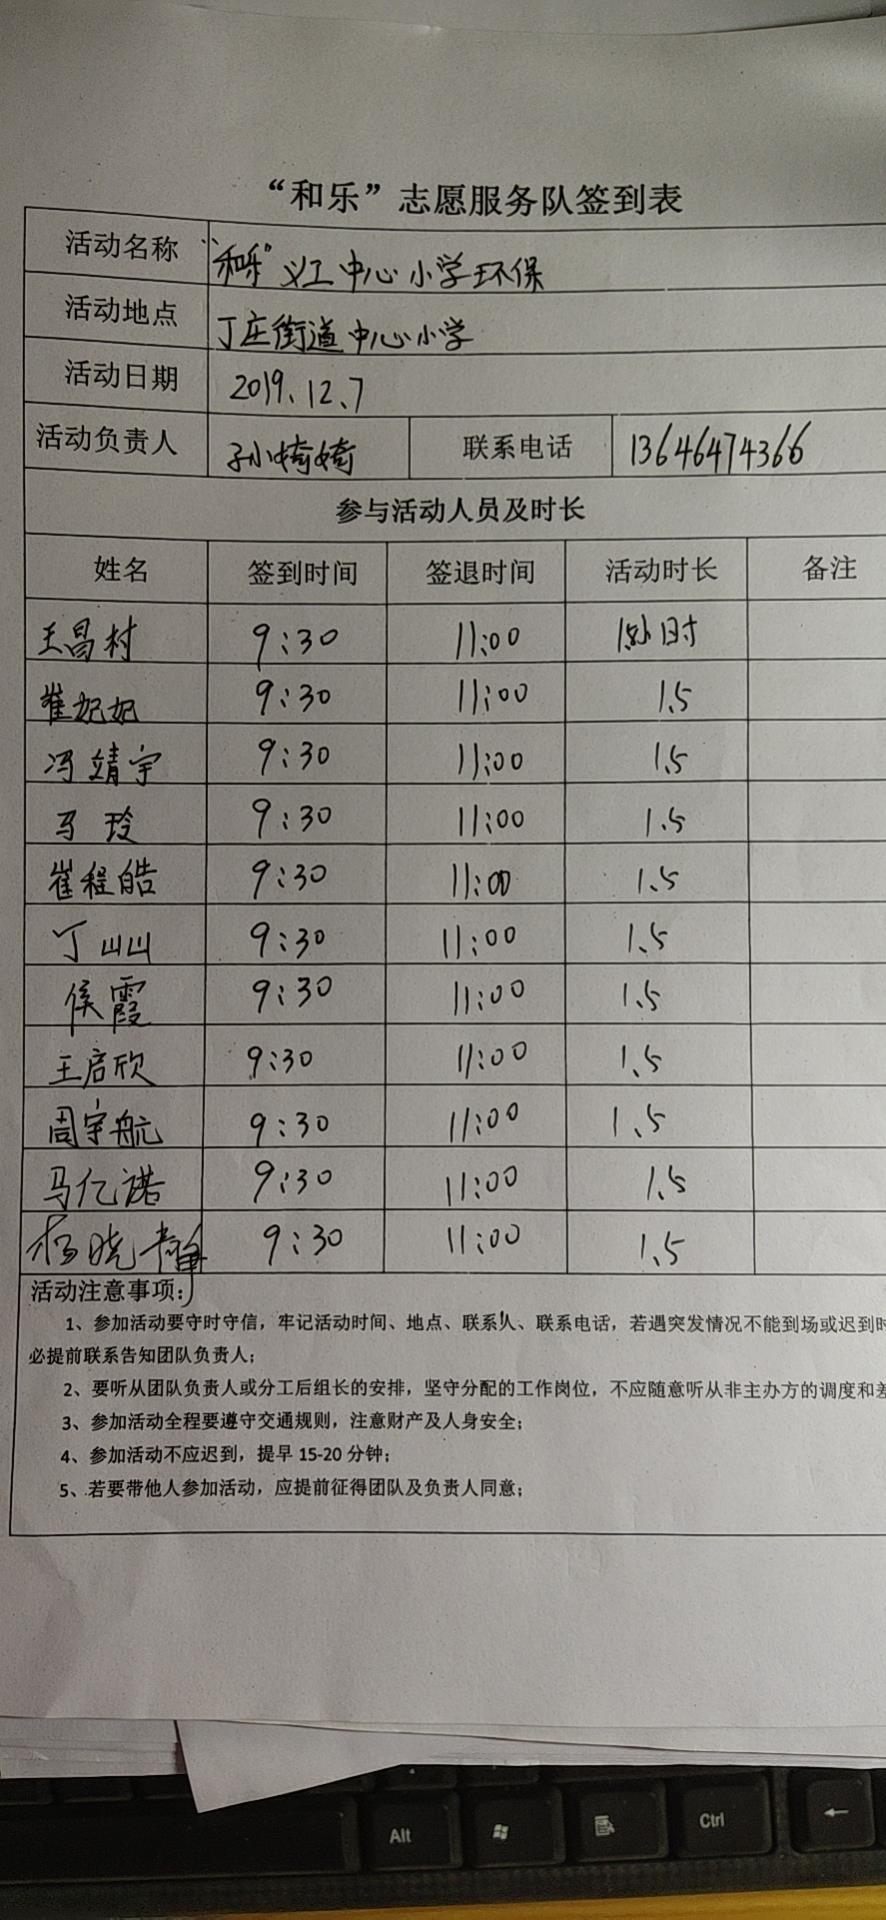 “和乐”志愿服务队签到表
活动名称 “和乐”义工中心小学环保
活动地点 丁庄街道中心小学
活动日期 2019.12.7
活动负责人 孙婍婍 联系电话 13646474366
参与活动人员及时长
姓名 签到时间 签退时间 活动时长 备注
王昌村 9:30 11:00 1.5小时
崔妃妃 9:30 11:00 1.5
冯靖宇 9:30 11:00 1.5
马玲 9:30 11:00 1.5
崔程皓 9:30 11:00 1.5
丁山山 9:30 11:00 1.5
侯霞 9:30 11:00 1.5
王启欣 9:30 11:00 1.5
周宇航 9:30 11:00 1.5
马亿诺 9:30 11:00 1.5
杨晓静 9:30 11:00 1.5
活动注意事项:
1、参加活动要守时守信，牢记活动时间、地点、联系人、联系电话，若遇突发情况不能到场或迟到时
必提前联系告知团队负责人；
2、要听从团队负责人或分工后组长的安排，坚守分配的工作岗位，不应随意听从非主办方的调度和差
3、参加活动全程要遵守交通规则，注意财产及人身安全；
4、参加活动不应迟到，提早 15-20 分钟；
5、若要带他人参加活动，应提前征得团队及负责人同意；
Alt Ctrl ←